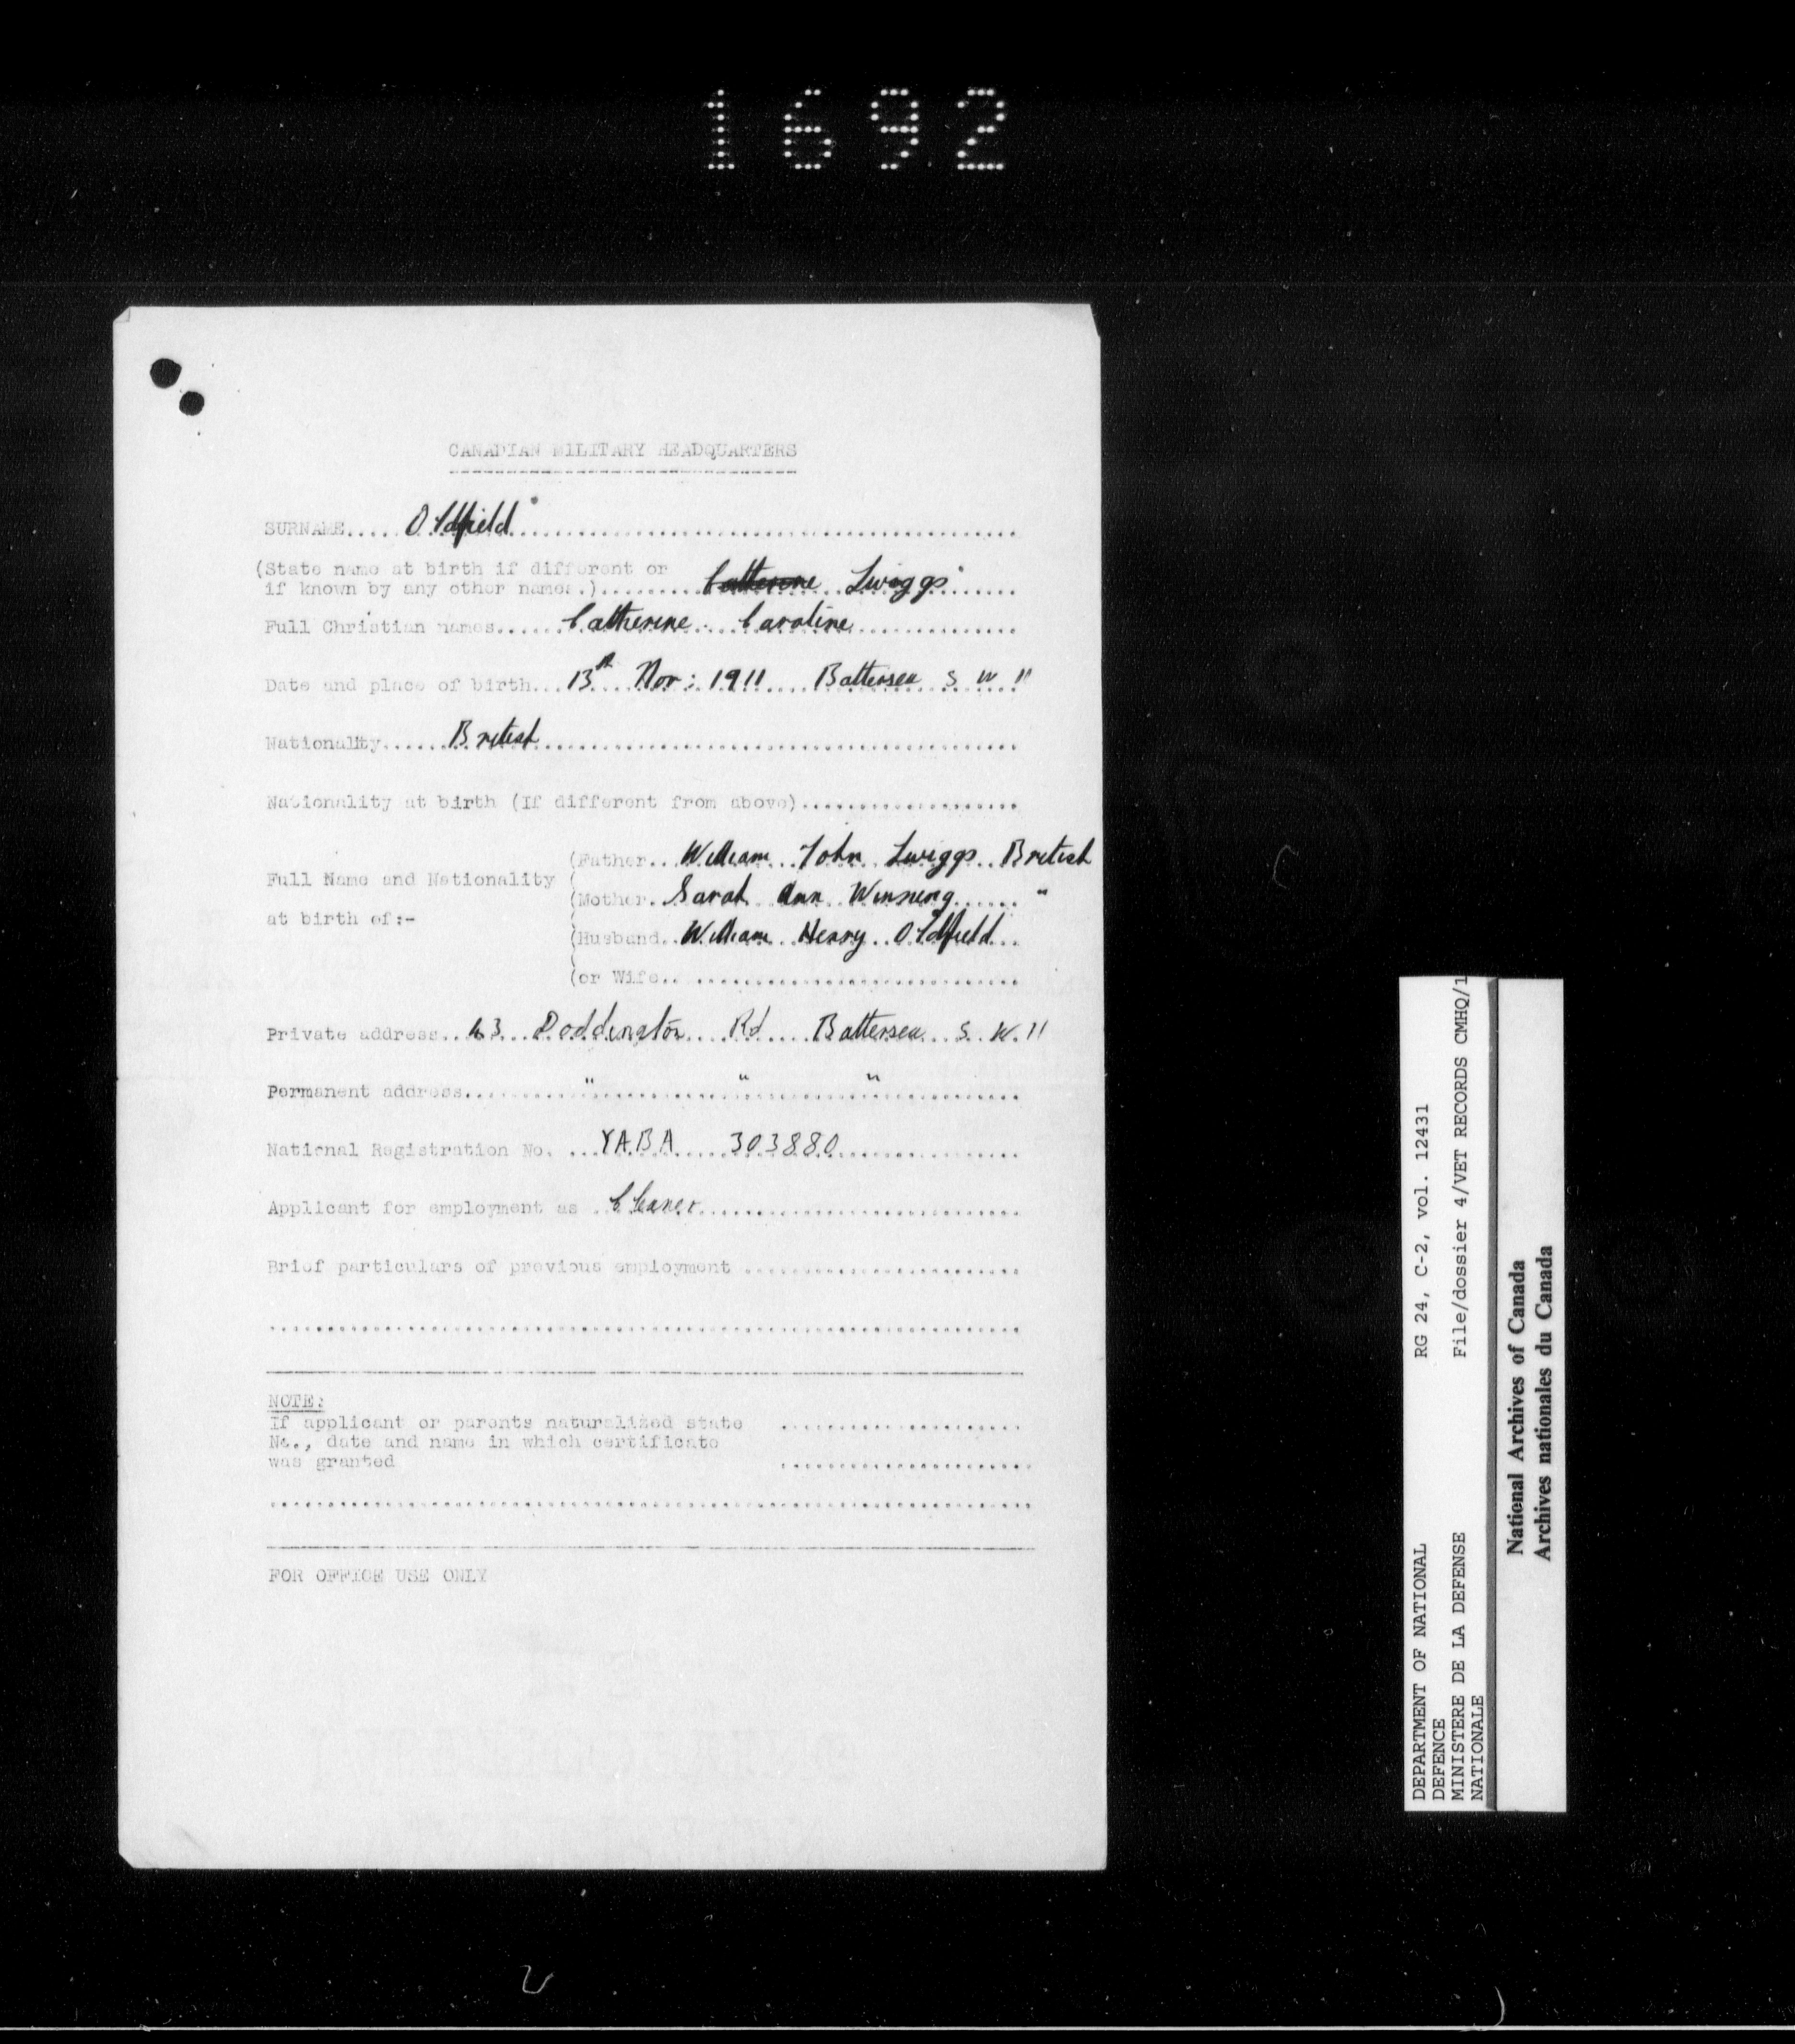 1692
CANADIAN MILITARY HEADQUARTERS
SURNAME.... Oldfield
(State name at birth if different or
if known by any other names.)........ Catherine Twiggs
Full Christian names..... Catherine Caroline
Date and place of birth... 13th Nov: 1911 Battersea S W 11
Nationality...... British
Nationality at birth (If different from above)...................
Full Name and Nationality
at birth of:-
(Father.. William John Twiggs British
(Mother. Sarah Ann Winning "
(Husband.. William Henry Oldfield
(or Wife.. ............................
Private address.. 43 Doddington Rd Battersea S.W.11
Permanent address........ " " "
National Registration No. ... YABA 303880
Applicant for employment as .. Cleaner
Brief particulars of previous employment ........................
NOTE:
If applicant or parents naturalized state
No., date and name in which certificate
was granted
FOR OFFICE USE ONLY
DEPARTMENT OF NATIONAL
DEFENCE
MINISTERE DE LA DEFENSE
NATIONALE
RG 24, C-2, vol. 12431
File/dossier 4/VET RECORDS CMHQ/1
National Archives of Canada
Archives nationales du Canada